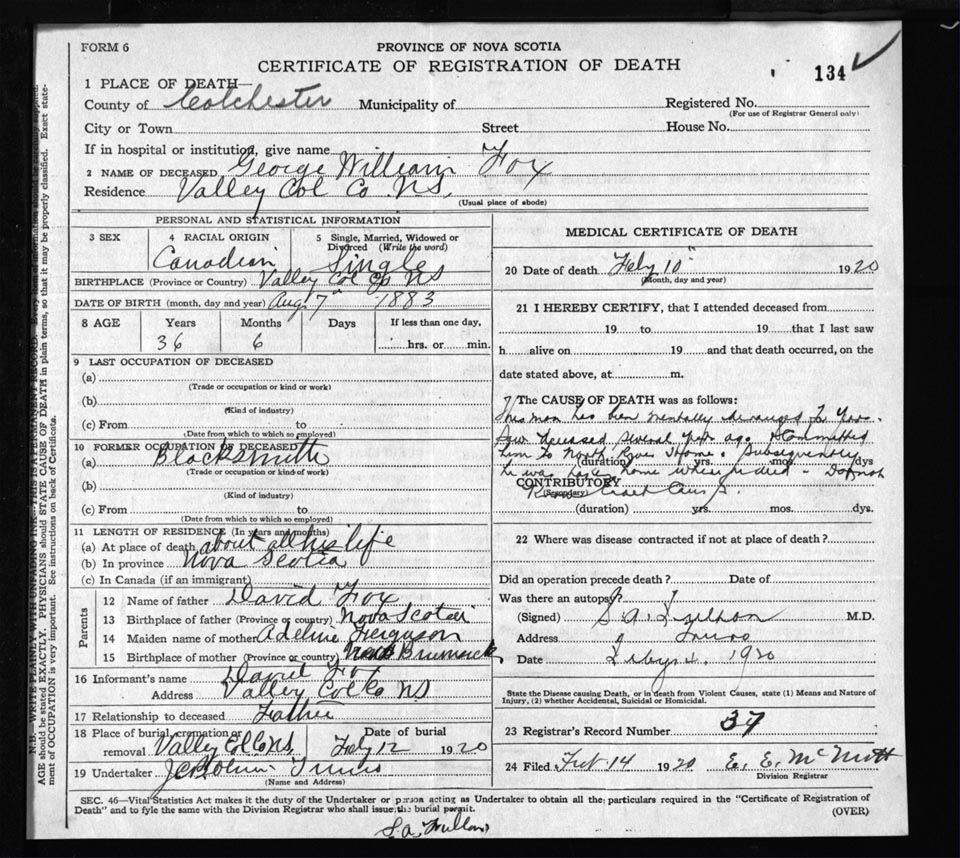 FORM 6
PROVINCE OF NOVA SCOTIA
CERTIFICATE OF REGISTRATION OF DEATH
134
1 PLACE OF DEATH—
County of Colchester Municipality of Registered No.
(For use of Registrar General only)
City or Town Street House No.
If in hospital or institution, give name
2 NAME OF DECEASED George William Fox
Residence Valley Col Co N.S.
(Usual place of abode)
PERSONAL AND STATISTICAL INFORMATION
3 SEX
4 RACIAL ORIGIN
Canadian
5 Single, Married, Widowed or
Divorced (Write the word)
Single
BIRTHPLACE (Province or Country) Valley Col Co NS
DATE OF BIRTH (month, day and year) Aug 7th 1883
8 AGE Years Months Days If less than one day,
36 6 hrs. or min.
9 LAST OCCUPATION OF DECEASED
(a)
(Trade or occupation or kind of work)
(b)
(Kind of industry)
(c) From to
(Date from which to which so employed)
10 FORMER OCCUPATION OF DECEASED
(a) Blacksmith
(Trade or occupation or kind of work)
(b)
(Kind of industry)
(c) From to
(Date from which to which so employed)
11 LENGTH OF RESIDENCE (In years and months)
(a) At place of death about all his life
(b) In province Nova Scotia
(c) In Canada (if an immigrant)
Parents
12 Name of father David Fox
13 Birthplace of father (Province or country) Nova Scotia
14 Maiden name of mother Adeline Ferguson
15 Birthplace of mother (Province or country) New Brunswick
16 Informant's name David Fox
Address Valley Col Co NS
17 Relationship to deceased Father
18 Place of burial, cremation or Date of burial
removal Valley Col Co NS Feby 12 1920
19 Undertaker Truro
(Name and Address)
MEDICAL CERTIFICATE OF DEATH
20 Date of death Feby 10" 1920
(Month, day and year)
21 I HEREBY CERTIFY, that I attended deceased from
19 to 19 that I last saw
h alive on 19 and that death occurred, on the
date stated above, at m.
The CAUSE OF DEATH was as follows:
This man has been mentally deranged for years.
Saw deceased several years ago & committed
him to North River Home. Subsequently
(duration) yrs. mos. dys
he was taken home where he died - Do not
CONTRIBUTORY
(Secondary)
(duration) yrs. mos. dys.
22 Where was disease contracted if not at place of death?
Did an operation precede death? Date of
Was there an autopsy?
(Signed) M.D.
Address Truro
Date 1920
State the Disease causing Death, or in death from Violent Causes, state (1) Means and Nature of
Injury, (2) whether Accidental, Suicidal or Homicidal.
23 Registrar's Record Number 37
24 Filed Feb 14 1920 E. E. McNutt
Division Registrar
SEC. 46—Vital Statistics Act makes it the duty of the Undertaker or person acting as Undertaker to obtain all the particulars required in the "Certificate of Registration of
Death" and to fyle the same with the Division Registrar who shall issue the burial permit.
(OVER)
N.B.—WRITE PLAINLY WITH UNFADING INK—THIS IS A PERMANENT RECORD.
AGE should be stated EXACTLY. PHYSICIANS should STATE CAUSE OF DEATH in plain terms, so that it may be properly classified. Exact state-
ment of OCCUPATION is very important. See instructions on back of Certificate.